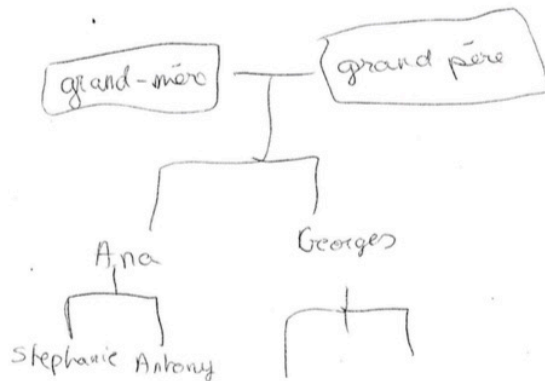 grand-mère grand père
Ana Georges
Stephanie Antony